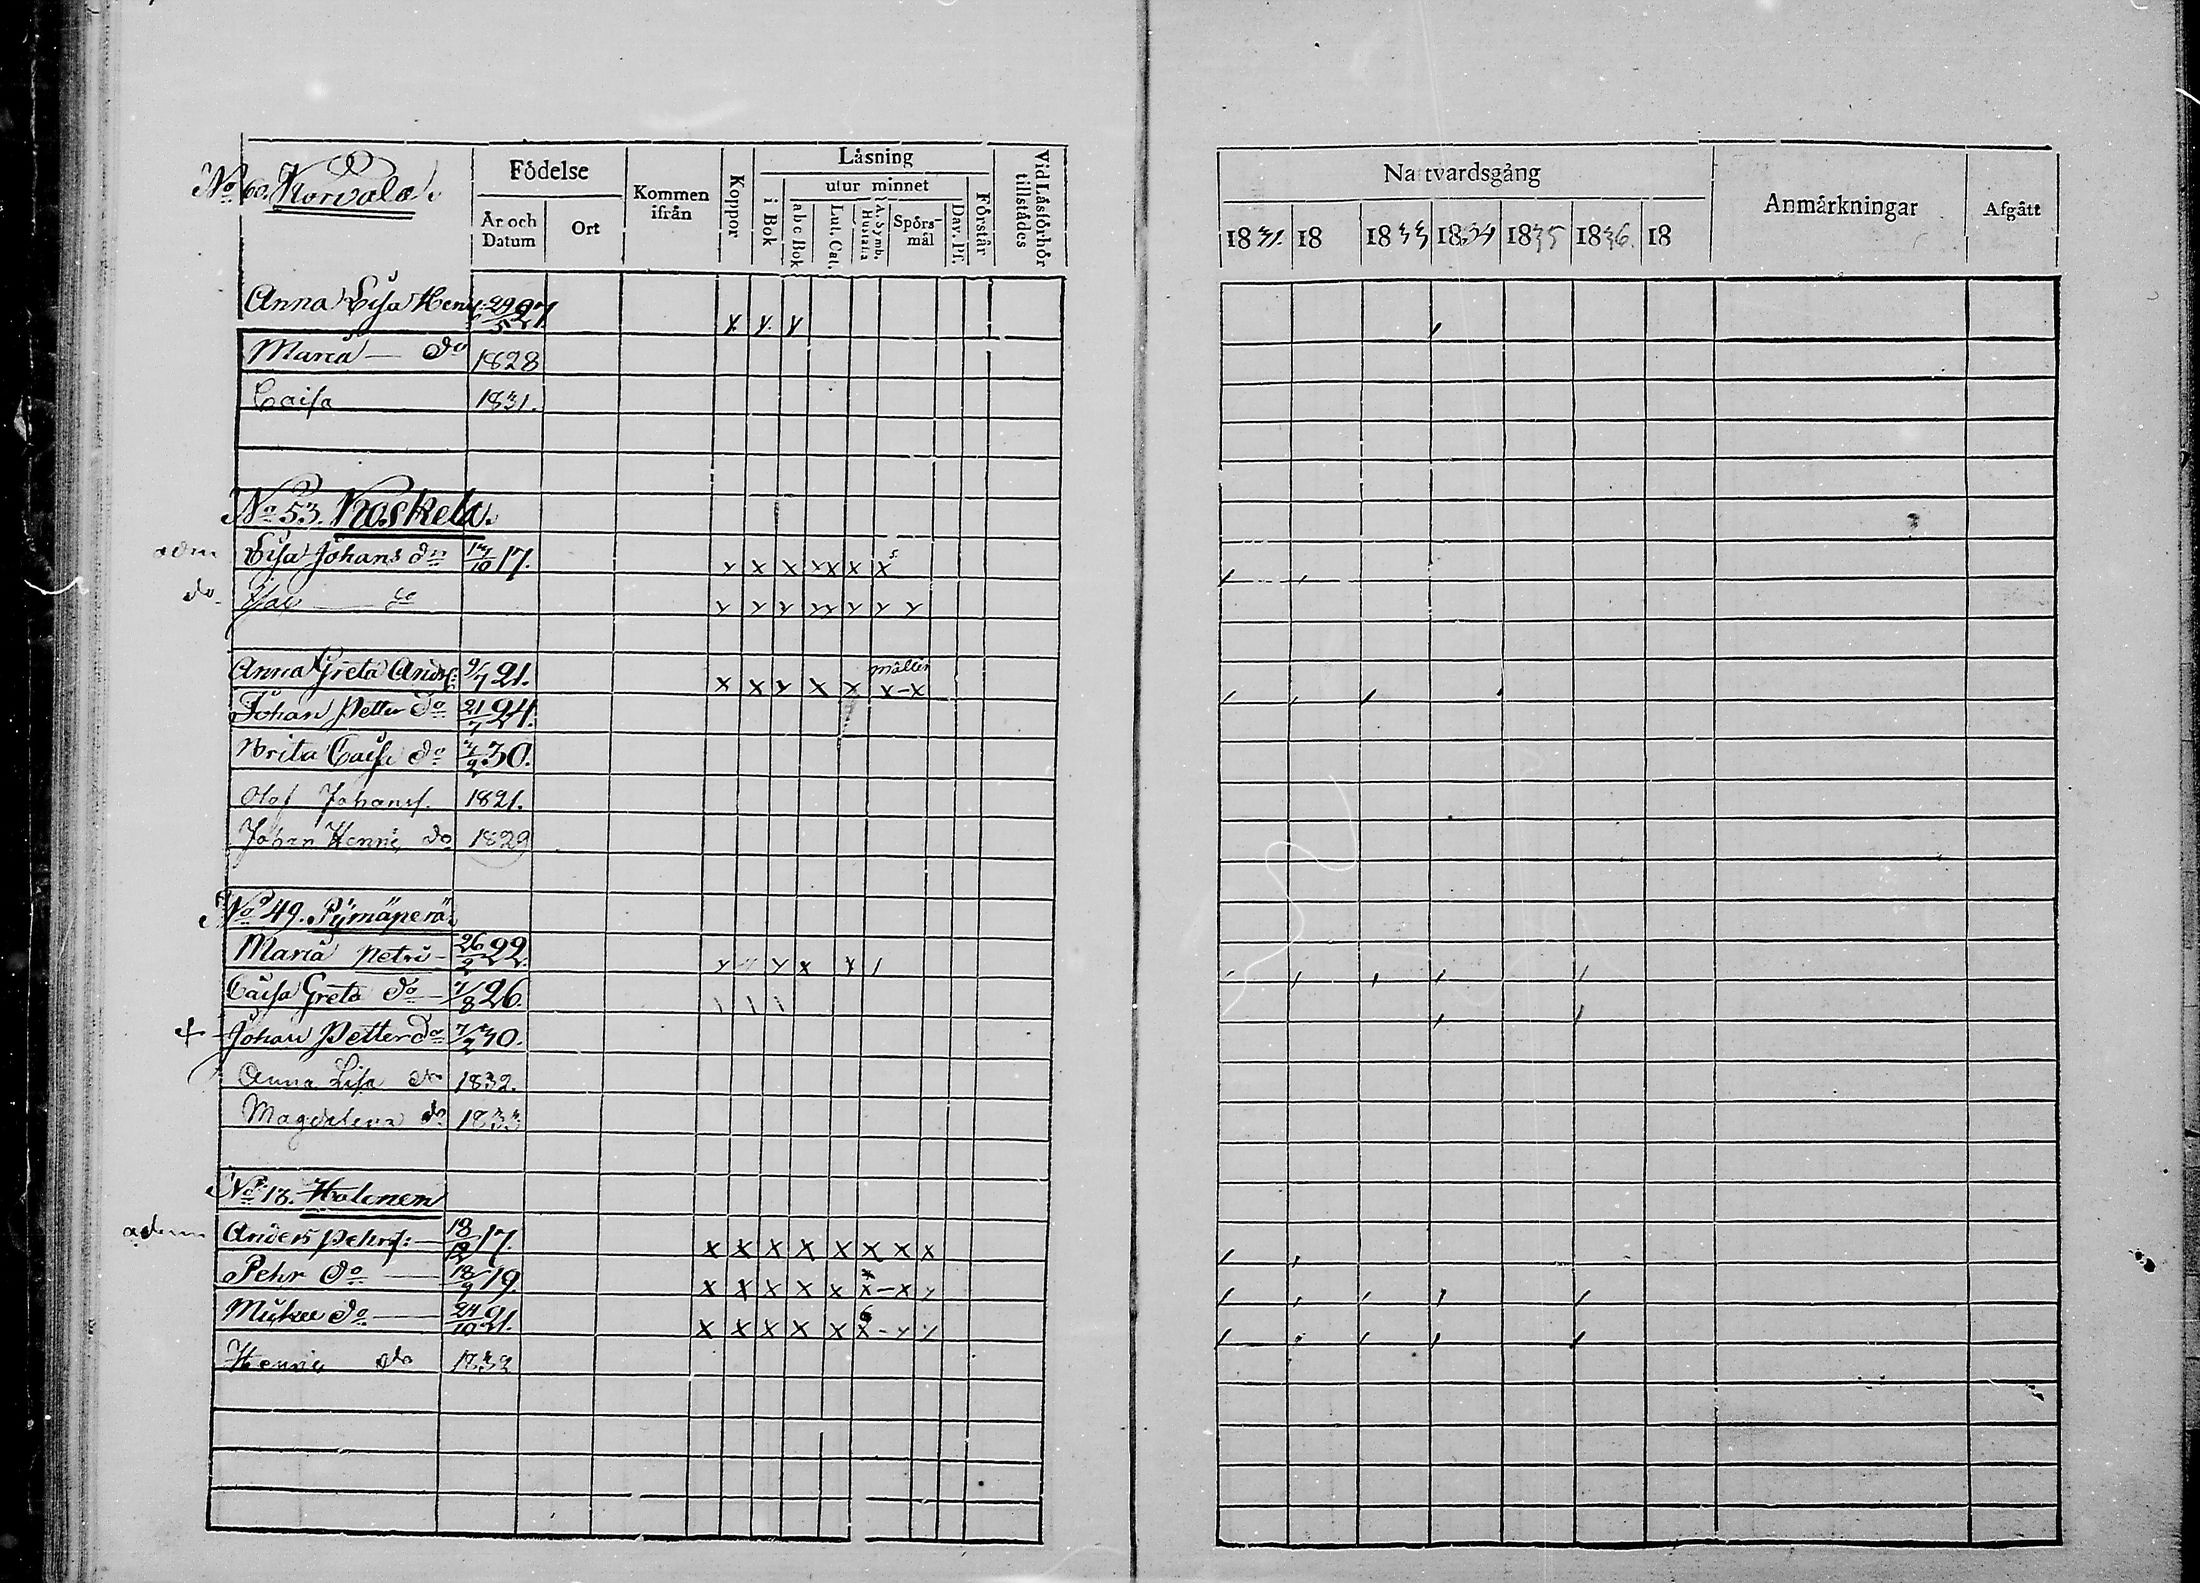 No 60. Korvala.
Födelse
År och Datum
Ort
Kommen ifrån
Koppor
Läsning
i Bok
utur minnet
abc Bok
Lut. Cat.
A. Symb. Hustafla
Spörsmål
Dav. Ps.
Förstår
Vid Läsförhör tillstädes
Nattvardsgång
1831. 18 1833 1834 1835 1836. 18
Anmärkningar
Afgått
Anna Lisa Henr 24/5 27
Maria — do 1828
Caisa 1831.
No 53. Koskela.
adm Lisa Johans dr /10 17.
do
Anna Greta Anders: 9/7 21. mållin
Johan Petter do 21/7 24.
Brita Caisa do /2 30.
Olof Johans. 1821.
Johan Henric do 1829
No 49. Pymäperä.
Maria Petri — 26/2 22.
Caisa Greta do — 7/8 26
+ Johan Petter do 7/2 30.
Anna Lisa do 1832.
Magdalena do 1833
No 18. Halonen
adm Anders Pehrs: — 18/12 17.
Pehr do — 18/9 19.
Mickel do — 24/10 21.
Henric do 1832